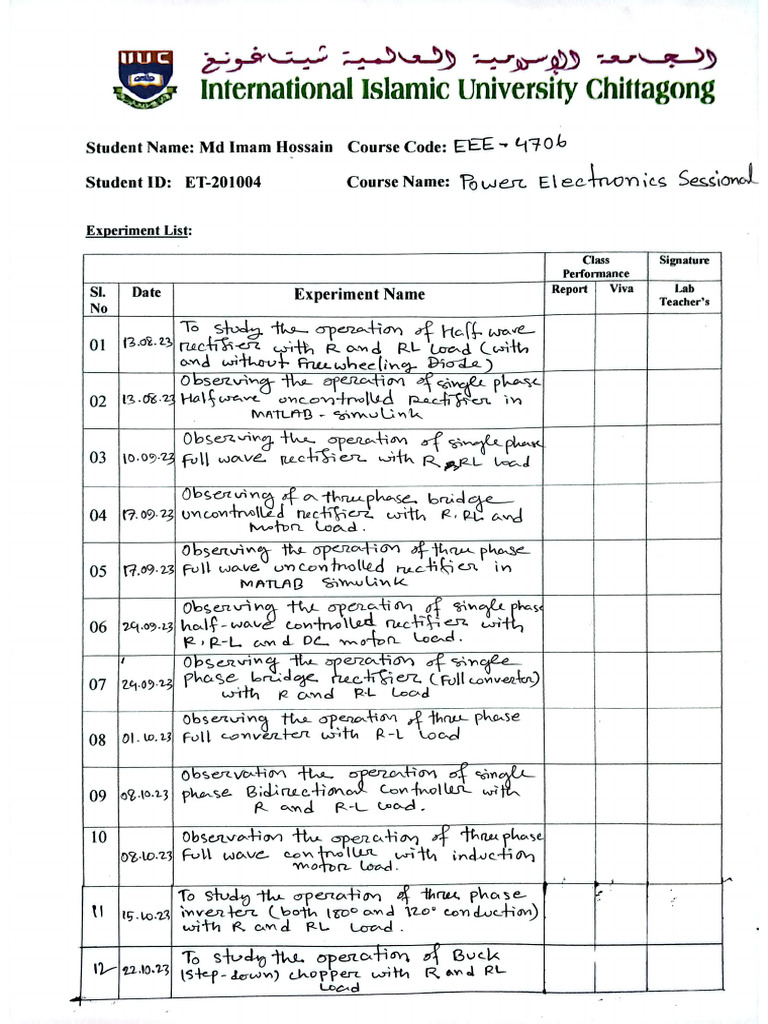 IIUC
الجامعة الإسلامية العالمية شيتاغونغ
International Islamic University Chittagong
Student Name: Md Imam Hossain Course Code: EEE-4706
Student ID: ET-201004 Course Name: Power Electronics Sessional
Experiment List:
Class Performance Signature
Sl. No Date Experiment Name Report Viva Lab Teacher's
01 13.08.23 To study the operation of Half wave
rectifier with R and RL Load (with
and without Freewheeling Diode)
02 13.08.23 Observing the operation of single phase
Halfwave uncontrolled Rectifier in
MATLAB-Simulink
03 10.09.23 Observing the operation of single phase
Full wave rectifier with R, RL Load
04 17.09.23 Observing of a three phase bridge
uncontrolled rectifier with R, RL and
Motor Load.
05 17.09.23 Observing the operation of three phase
Full wave uncontrolled rectifier in
MATLAB Simulink
06 24.09.23 Observing the operation of single phase
half-wave controlled rectifier with
R, R-L and DC motor Load.
07 24.09.23 Observing the operation of single
phase bridge rectifier (Full convertor)
with R and R-L Load
08 01.10.23 Observing the operation of three phase
Full converter with R-L Load
09 08.10.23 Observation the operation of single
phase Bidirectional Controller with
R and R-L Load.
10 08.10.23 Observation the operation of three phase
Full wave controller with induction
motor Load.
11 15.10.23 To study the operation of three phase
inverter (both 180° and 120° conduction)
with R and RL Load.
12 22.10.23 To study the operation of Buck
(step-down) chopper with R and RL
Load